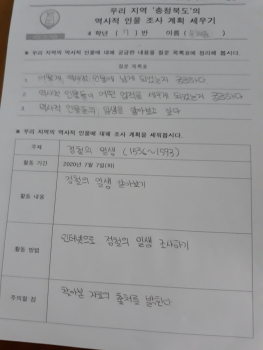 우리 지역 '충청북도'의
역사적 인물 조사 계획 세우기
4 학년 ( 7 ) 반 이름 (
※ 우리 지역의 역사적 인물에 대해 궁금한 내용을 질문 목록표에 정리해 봅시다.
질문 목록표
1 어떻게 역사적 인물에 남게 되었는지 궁금하다
2 역사적 인물들이 어떤 업적을 세우게 되었는지 궁금하다
3 역사적 인물들의 일생을 알아보고 싶다
※ 우리 지역의 역사적 인물에 대해 조사 계획을 세워봅시다.
주제
일생 (1536~1593)
활동 기간
2020년 7월 7일(화)
활동 내용
일생 알아보기
활동 방법
인터넷으로 일생 조사하기
주의할 점
찾아본 자료의 출처를 밝힌다